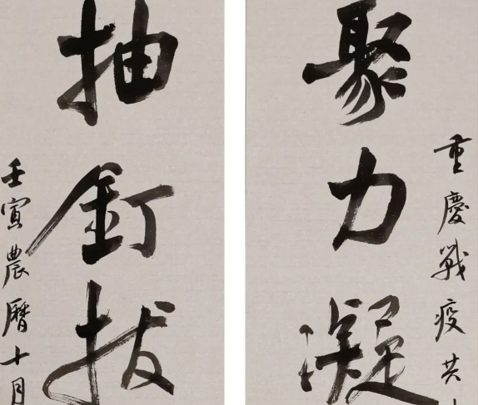 重慶戰疫共
聚力凝
抽釘拔
壬寅農曆十月